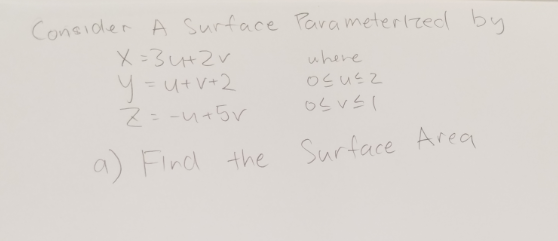 Consider A Surface Parameterized by
X = 3u+2v where
y = u+v+2 0≤u≤2
Z = -u+5v 0≤v≤1
a) Find the Surface Area